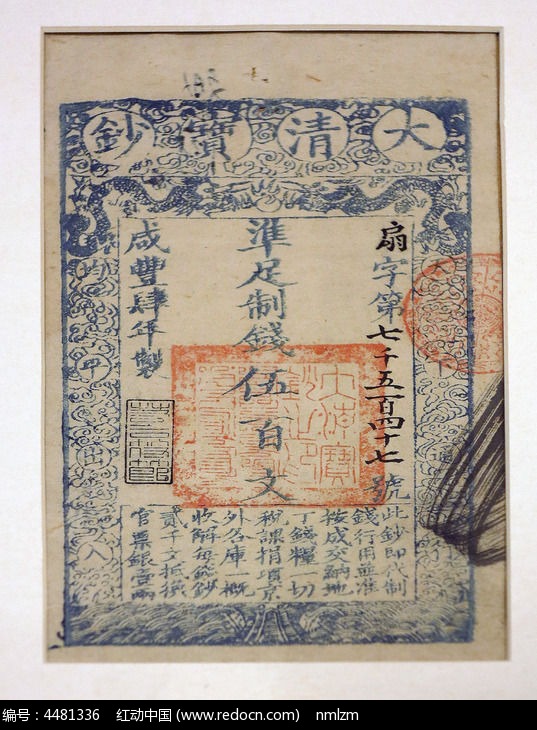 大清寶鈔
天下通行
扇字第七千五百四十七號
準足制錢伍百文
咸豐肆年製
均平出入
此鈔即代制
錢行用並准
按成交納地
丁錢糧一切
稅課捐項京
外各庫一概
收解每錢鈔
貳千文抵換
官票銀壹兩
编号：4481336 红动中国 (www.redocn.com) nmlzm